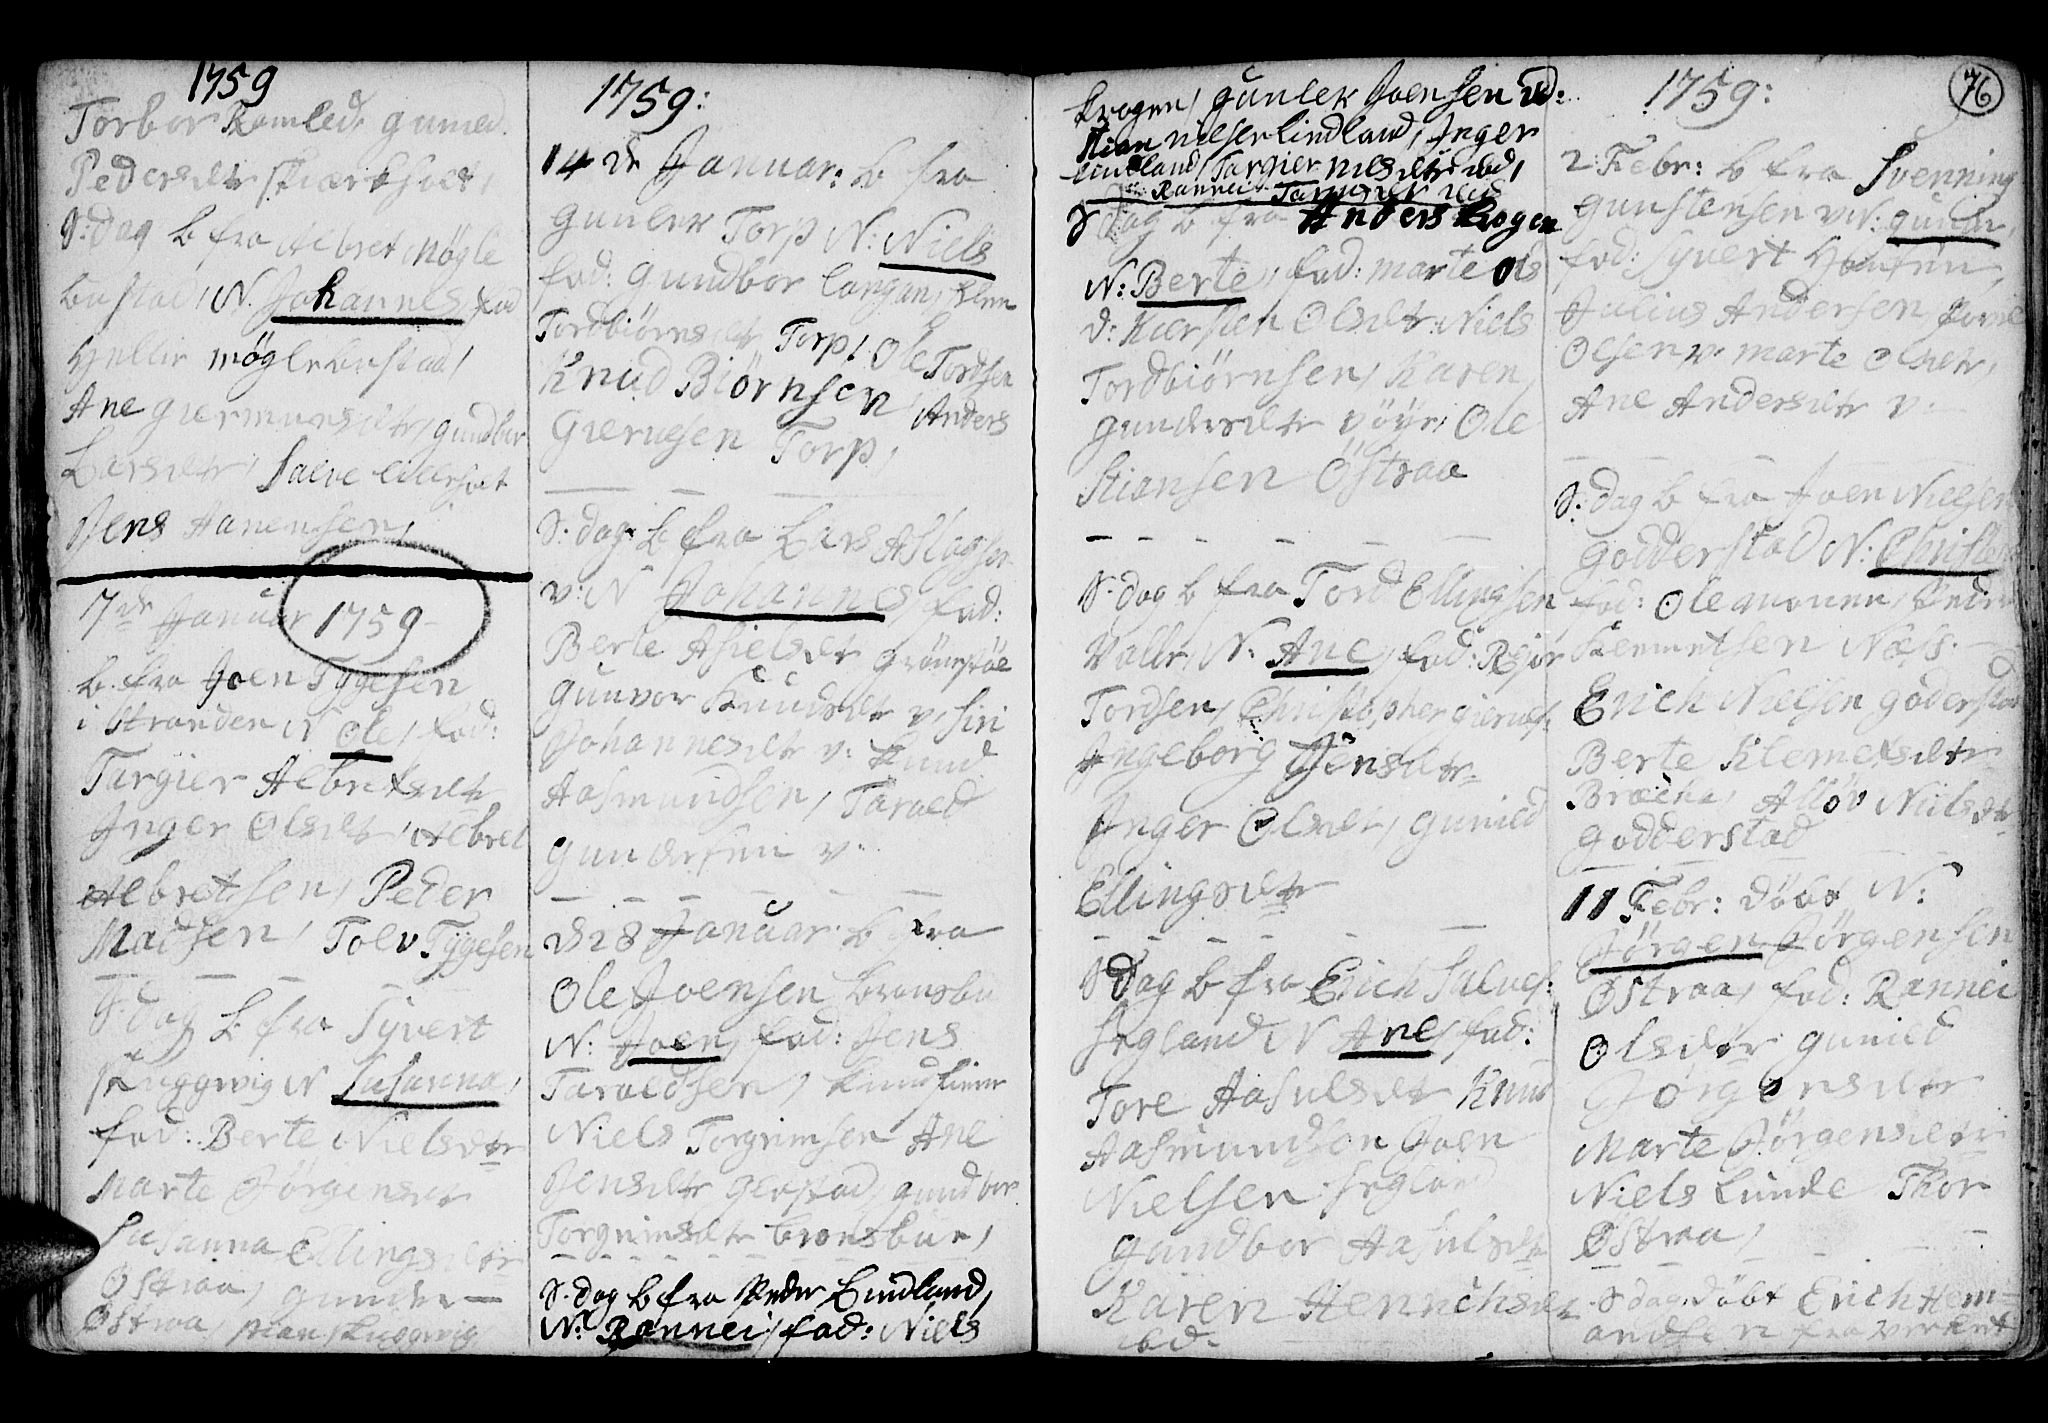 1759
Torbor Romled, guned
Pedersdtr skiærkholt,
S: dag b fra Albret Møgle
bustad, N. Johannes, fad
Hellie møglebustad,
Ane giermunsdtr, gundbor
Larsdtr, Salve
Jens Hanensen,
7de Januar 1759
b. fra Joen Tygesen
i Stranden N Ole, fad:
Targier Albretsdtr
Inger Olsdtr, Albret
Albretsen, Peder
Madsen, Tolv Tygesen
S. dag b. fra Syvert
skuggevig N Susanna,
fad: Berte Nielsdtr
Marte Jørgensdtr
Susanna Ellingsdtr
Østraa, gunder
Østraa, stian skuggevig
1759:
14 de Januar: b. fra
Gunler Torp N: Niels
fad: Gundbor Langan,
Tordbiørnsdtr Torp, Ole Tordsen
Knud Biørnsen, Anders
Gieruesen Torp,
S. dag b fra Lars Aslagsen
v: N Johannes, fad:
Berte Asielsdtr
gunvor Knudsdtr v, siri
Johannesdtr v: Knud
Aasmundsen, Tarald
gundersen v:
d 28 Januar b fra
Ole Joensen bronsbu
N: Joen, fad: Jens
Taraldsen, Knud
Niels Torgrimsen Ane
Jensdtr glostad, gundbor
Torgrimsdtr bronsbue,
S. dag b fra Peder Lindland,
N: Rannei, fad: Niels
krogen, gunler Joensen ibd:
stian nielsen lindland, Inger
lindland, Targier nilsdtr ibd,
Rannei ibd
S dag b fra Anders krogen
N: Berte, fad: marte ols
d: Kiersten Olsdtr: Niels
Tordbiørnsen, Karen
gundersdtr vøye, Ole
Stiansen Østraa
S. dag b fra Tord Ellingsen
Valle, N: Ane, fad: Rejer
Tordsen, Christopher gierues:
Ingeborg Jensdtr
Inger Olsdtr, guned
Ellingsdtr
S dag b fra Erich Salves:
segland N Ane, fad:
Tore Aasulsdtr Knud
Aasmundsen Joen
Nielsen segland
gundbor Aasulsdtr
Karen Henrichsdtr
ibd.
1759:
76
2. Febr: b fra Svenning
gunstensen v N: guner,
fad: Syvert Hansen,
Julius Andersen
Olsen v. marte olsdtr,
Ane Andersdtr v:
S: dag b fra Joen Nielsen
godderstad N: Christen
fad: Ole monen, Anders
Klemetsen Næs.
Erich Nielsen godderstad
Berte Klemetsdtr
Brække, Alløv Nilsdtr
godderstad
11 Febr: døbt N:
Jørgen Jørgensen
Østraa, fad: Rannei
Olsdtr guned
Jørgensdtr
Marte Jørgensdtr
Niels Lunde Thor
Østraa,
S dag døbt Erich Hem=
andsen fra verket